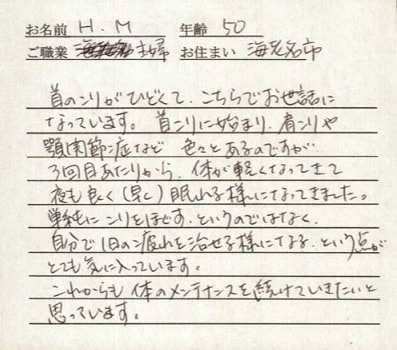 お名前 H.M 年齢 50
ご職業 主婦 お住まい 海老名市
首のこりがひどくて、こちらでお世話に
なっています。首こりに始まり、肩こりや
顎関節症など色々とあるのですが、
3回目あたりから、体が軽くなってきて
夜も良く(早く)眠れる様になってきました。
単純にこりをほぐす、というのではなく、
自分で1日の疲れを治せる様になる、という点が
とても気に入っています。
これからも体のメンテナンスを続けていきたいと
思っています。